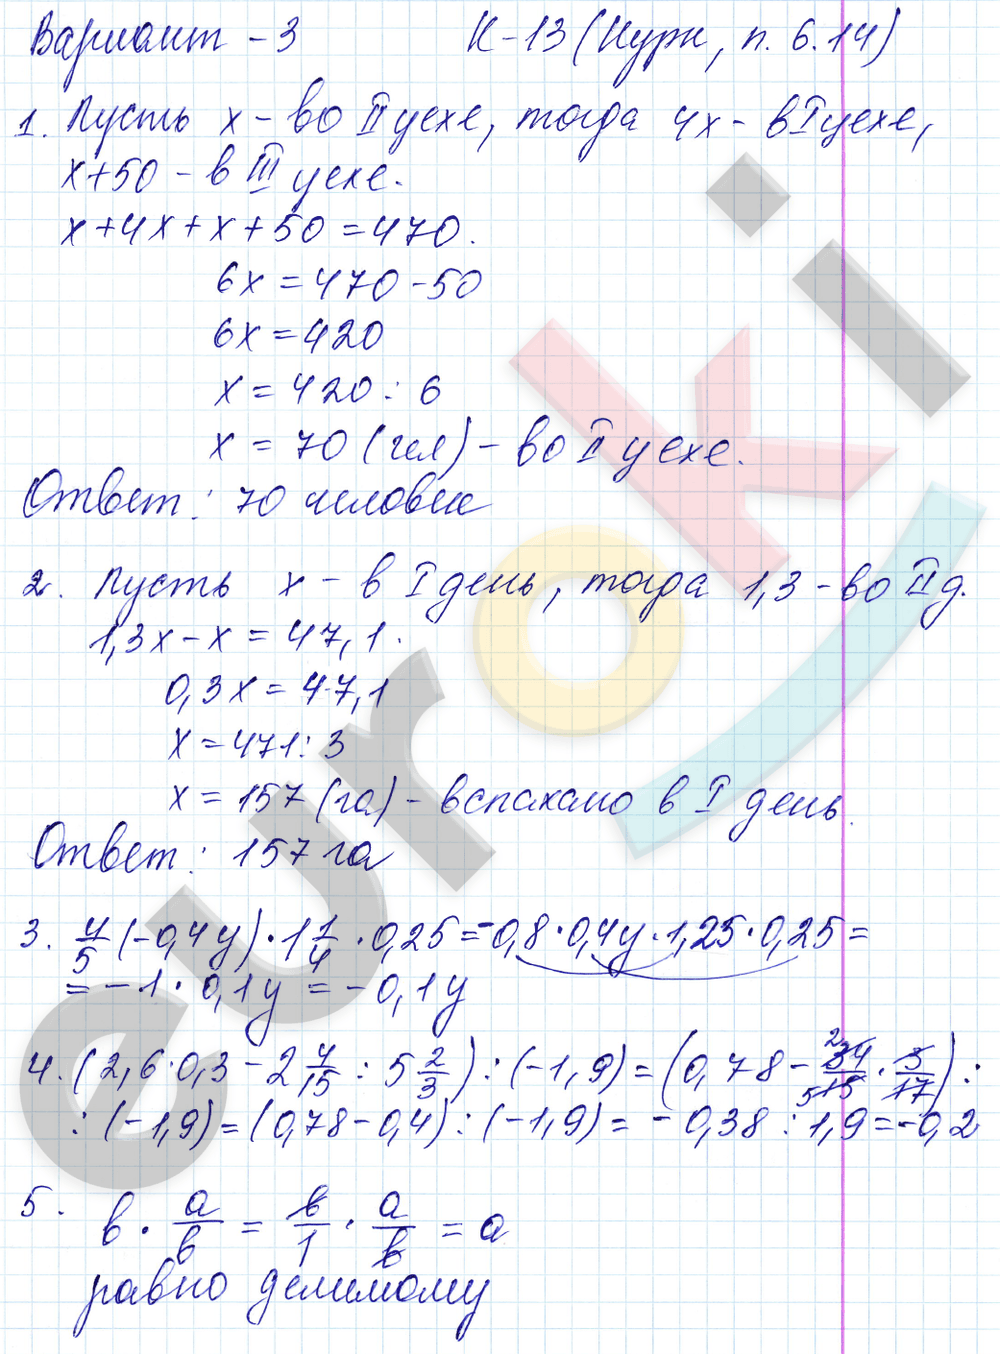 Вариант - 3 К-13 (Нурк, п. 6.14)
1. Пусть x - во II цехе, тогда 4x - в I цехе,
x+50 - в III цехе.
x+4x+x+50=470.
6x=470-50
6x=420
x=420:6
x=70 (чел) - во II цехе.
Ответ: 70 человек
2. Пусть x - в I день, тогда 1,3 - во II д.
1,3x-x=47,1.
0,3x=47,1
x=471:3
x=157 (га) - вспахано в I день.
Ответ: 157 га
3. 4/5 (-0,4y)·1 1/4·0,25=-0,8·0,4y·1,25·0,25=
=-1·0,1y=-0,1y
4. (2,6·0,3-2 4/15:5 2/3):(-1,9)=(0,78-34/15·3/17):
:(-1,9)=(0,78-0,4):(-1,9)=-0,38:1,9=-0,2
5. b·a/b=b/1·a/b=a
равно делимому
euroki